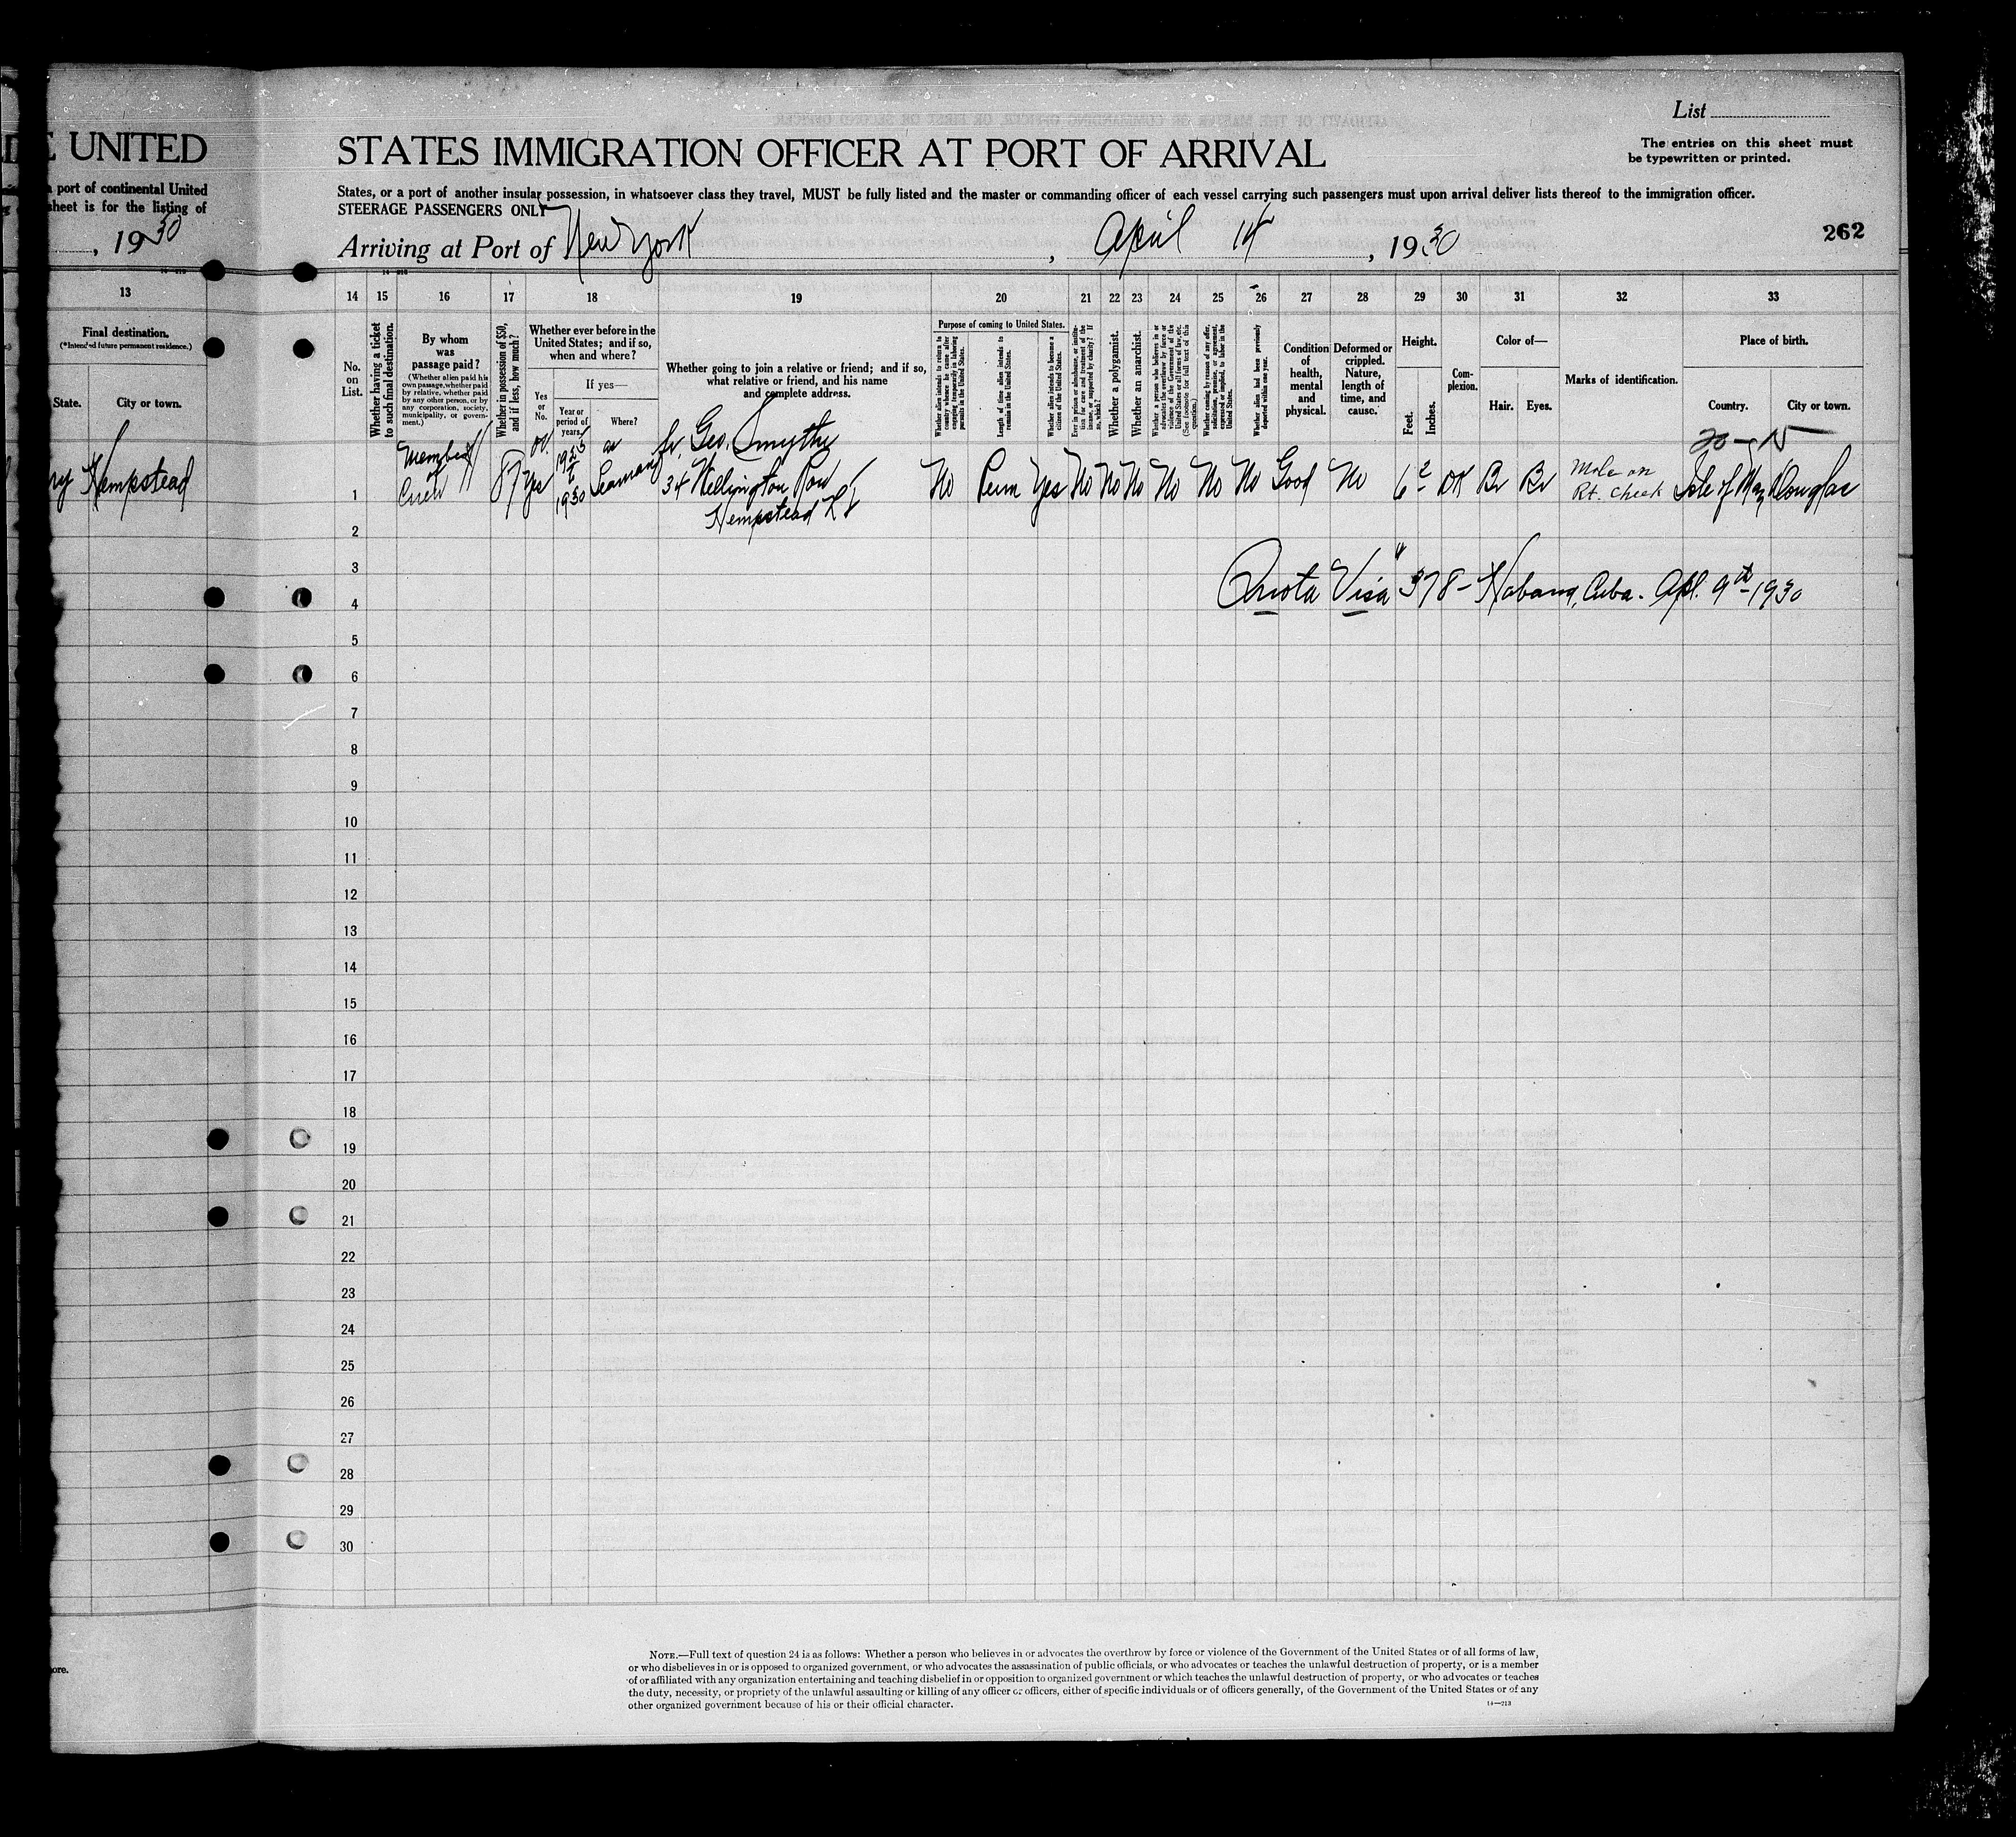 List
The entries on this sheet must
be typewritten or printed.
E UNITED
STATES IMMIGRATION OFFICER AT PORT OF ARRIVAL
a port of continental United
sheet is for the listing of
States, or a port of another insular possession, in whatsoever class they travel, MUST be fully listed and the master or commanding officer of each vessel carrying such passengers must upon arrival deliver lists thereof to the immigration officer.
STEERAGE PASSENGERS ONLY
, 1930
Arriving at Port of New York, April 14, 1930
262
13
14 15 16 17 18 19 20 21 22 23 24 25 26 27 28 29 30 31 32 33
Final destination.
(*Intended future permanent residence.)
State.
City or town.
No.
on
List.
Whether having a ticket
to such final destination.
By whom
was
passage paid?
(Whether alien paid his
own passage, whether paid
by relative, whether paid
by any other person, or by
any corporation, society,
municipality, or govern-
ment.)
Whether in possession of $50,
and if less, how much?
Whether ever before in the
United States; and if so,
when and where?
Yes
or
No.
If yes—
Year or
period of
years.
Where?
Whether going to join a relative or friend; and if so,
what relative or friend, and his name
and complete address.
Purpose of coming to United States.
Whether alien intends to return to
country whence he came after
engaging temporarily in laboring
pursuits in the United States.
Length of time alien intends to
remain in the United States.
Whether alien intends to become a
citizen of the United States.
Ever in prison or almshouse, or institu-
tion for care and treatment of the
insane, or supported by charity? If
so, which?
Whether a polygamist.
Whether an anarchist.
Whether a person who believes in or
advocates the overthrow by force or
violence of the Government of the
United States or of all forms of law, etc.
(See footnote for full text of this
question.)
Whether coming by reason of any offer,
solicitation, promise, or agreement,
expressed or implied, to labor in the
United States.
Whether alien had been previously
deported within one year.
Condition
of
health,
mental
and
physical.
Deformed or
crippled.
Nature,
length of
time, and
cause.
Height.
Feet.
Inches.
Com-
plexion.
Color of—
Hair.
Eyes.
Marks of identification.
Place of birth.
Country.
City or town.
20-15
ny Hempstead
1
Member
of
Crew
87 Yes
1925
to
1930
as
Seaman
fr. Geo. Smythe
34 Wellington Row
Hempstead LI
No Perm Yes No No No No No No Good No 6 2 DK Br Br
Mole on
Rt. Cheek
Isle of Man Douglas
2
3
Quota Visa # 378 - Habana, Cuba. Apl. 9th - 1930
4
5
6
7
8
9
10
11
12
13
14
15
16
17
18
19
20
21
22
23
24
25
26
27
28
29
30
ore.
NOTE.—Full text of question 24 is as follows: Whether a person who believes in or advocates the overthrow by force or violence of the Government of the United States or of all forms of law,
or who disbelieves in or is opposed to organized government, or who advocates the assassination of public officials, or who advocates or teaches the unlawful destruction of property, or is a member
of or affiliated with any organization entertaining and teaching disbelief in or opposition to organized government or which teaches the unlawful destruction of property, or who advocates or teaches
the duty, necessity, or propriety of the unlawful assaulting or killing of any officer or officers, either of specific individuals or of officers generally, of the Government of the United States or of any
other organized government because of his or their official character.
14—213